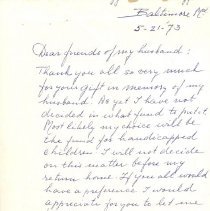 Baltimore Md
5-21-73
Dear friends of my husband:
Thank you all so very much
for your gift in memory of my
husband. As yet I have not
decided in what fund to put it
Most likely my choice will be
the fund for handicapped
children. I will not decide
on this matter before my
return home. If you all would
have a preference I would
appreciate for you to let me